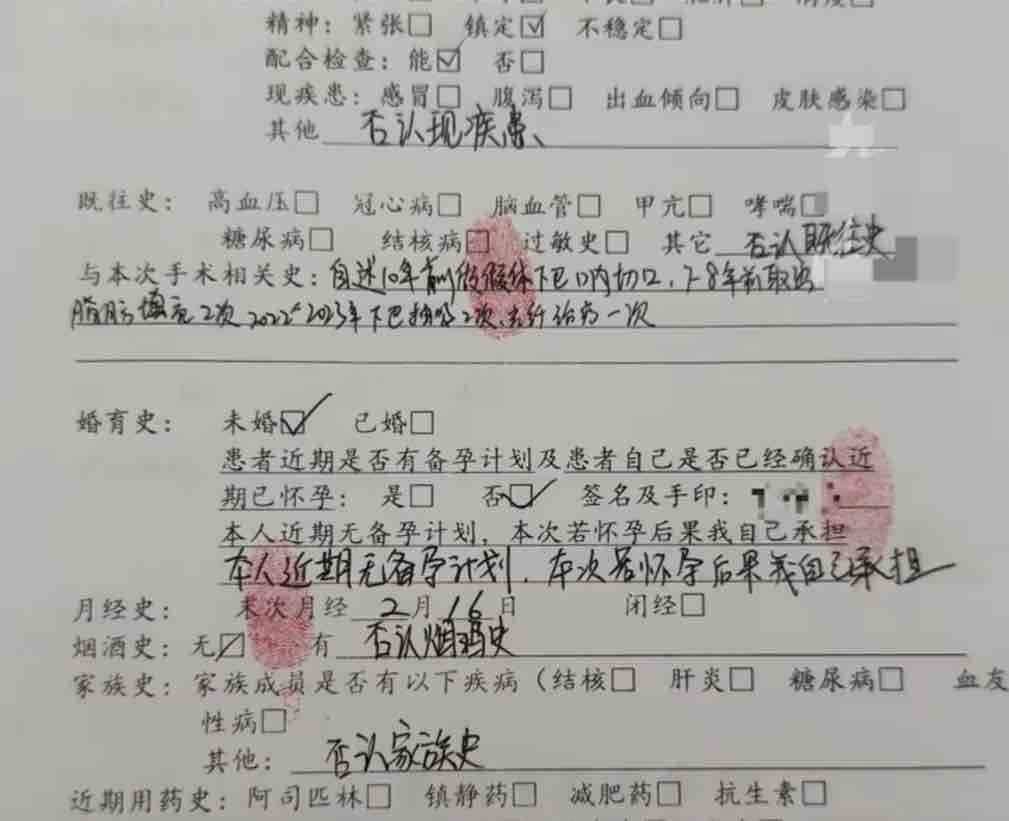 精神：紧张□ 镇定☑ 不稳定□
配合检查：能☑ 否□
现疾患：感冒□ 腹泻□ 出血倾向□ 皮肤感染□
其他 否认现疾患、
既往史： 高血压□ 冠心病□ 脑血管□ 甲亢□ 哮喘□
糖尿病□ 结核病□ 过敏史□ 其它 否认既往史
与本次手术相关史：自述10年前做假体下巴口内切口，7-8年前取出
脂肪填充2次 2022-2023年下巴抽吸2次、光纤治疗一次
婚育史： 未婚☑ 已婚□
患者近期是否有备孕计划及患者自己是否已经确认近
期已怀孕： 是□ 否☑ 签名及手印：
本人近期无备孕计划，本次若怀孕后果我自己承担
本人近期无备孕计划，本次若怀孕后果我自己承担
月经史： 末次月经 2月16日 闭经□
烟酒史：无☑ 有 否认烟酒史
家族史：家族成员是否有以下疾病（结核□ 肝炎□ 糖尿病□ 血友
性病□
其他： 否认家族史
近期用药史：阿司匹林□ 镇静药□ 减肥药□ 抗生素□